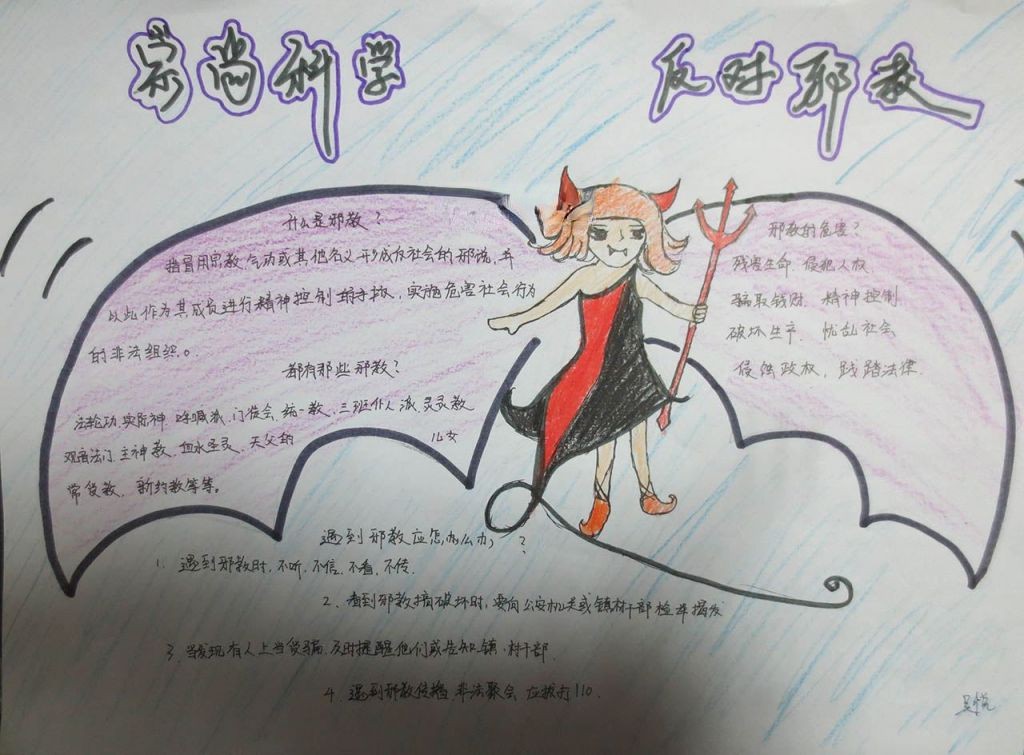 崇尚科学
反对邪教
什么是邪教？
指冒用宗教、气功或其他名义形成反社会的邪说，并
以此作为其成员进行精神控制 手段，实施危害社会行为
的非法组织。
都有那些邪教？
法轮功、实际神、呼喊派、门徒会、统一教、三班仆人派、灵灵教
观音法门、主神教、血水圣灵、天父的 儿女
常受教、新约教等等。
邪教的危害？
残害生命、侵犯人权、
骗取钱财、精神控制
破坏生产、扰乱社会
侵蚀政权，践踏法律.
遇到邪教应怎么办？
1. 遇到邪教时，不听、不信、不看、不传.
2、看到邪教搞破坏时，要向公安机关或镇村干部检举揭发
3、当发现有人上当受骗，及时提醒他们或告知镇、村干部.
4、遇到邪教传播、非法聚会 应拨打110.